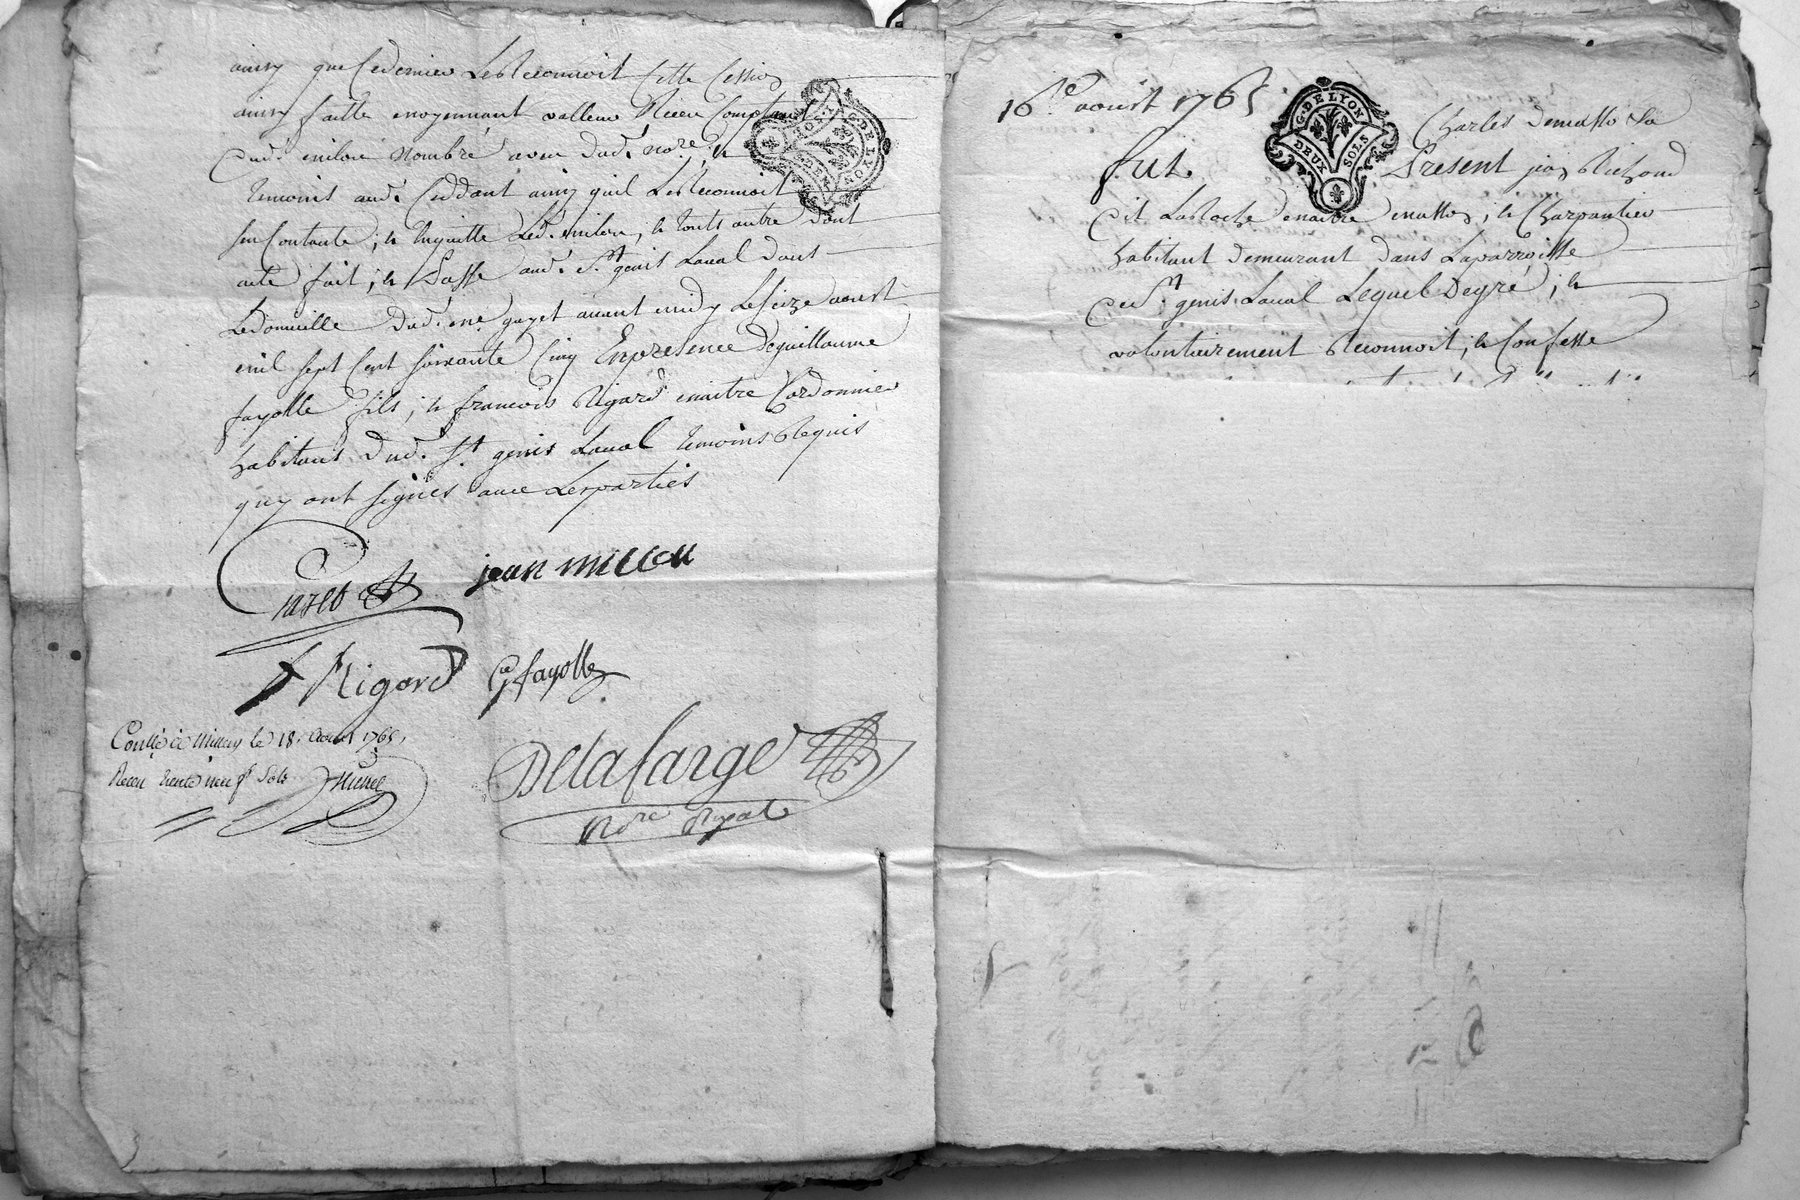 ainsy que Ce dernier Le Reconnoit Cette Cession
ainsy faitte moyennant valleur Receu Comptant
Dud. milou Nombré aveu Dud. nore. &
temoins aud. Ceddant ainsy quil Le Reconnoit
sen Contante, & En quitte Led. milou, & touts autre dont
acte fait, & Passé aud. St. genis Laval dans
Le domicille Dud. me. guyet avant midy Le seize aoust
mil sept Cent soixante Cinq En presence De guillaume
fayolle fils, & francois Rigard maitre Cordonnier
habitans Dud. St. genis Laval temoins Requis
quy ont signés avec Les parties
jean millou
F Rigard
Ge fayolle
Conllé a Millery le 18. Aoust 1765.
Receu trente neuf Sols
Delafarge
Nore Royal
16e. aoust 1765.
G. DE LYON
DEUX SOLS
Charles demasso La
fut Present
Dit LaRoche maitre masson, & Charpantier
habitant demeurant dans La parroisse
De St. genis Laval Lequel De gré, &
volontairement Reconnoit, & Confesse